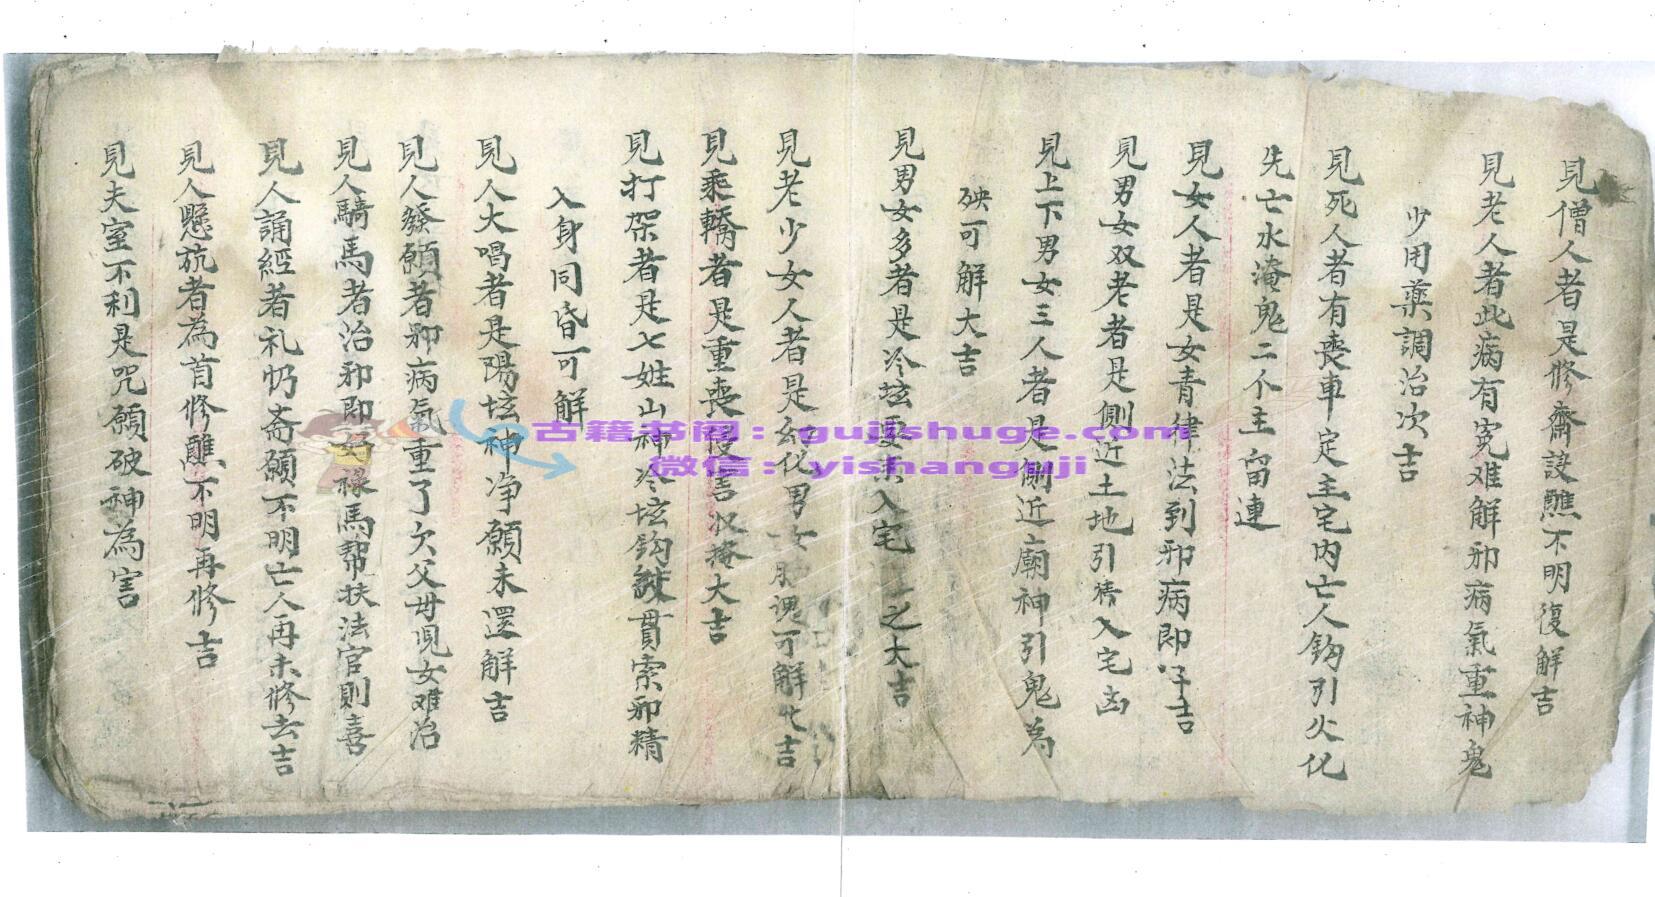 見僧人者是修齋設醮不明復解吉
見老人者此病有冤难解邪病氣重神鬼
少用藥調治次吉
見死人者有喪車定主宅内亡人鈎引火化
先亡水淹鬼二个主留連
見女人者是女青律法到邪病即好吉
見男女双老者是側近土地引精入宅凶
見上下男女三人者是側近廟神引鬼为
殃可解大吉
見男女多者是冷坛要入宅之大吉
見老少女人者是幼化男女可解化吉
見乘轎者是重喪侵害收掩大吉
見打架者是七姓山神冷坛鈎貫索邪精
入身同昏可解
見人大唱者是陽坛神净願未還解吉
見人發願者邪病氣重了欠父毋児女难治
見人騎馬者治邪即好祿馬帮扶法官則喜
見人誦經者礼忏斋願不明亡人再未修去吉
見人懸旐者為首修醮不明再修吉
見夫室不利是咒願破神為害
古籍书阁：gujishuge.com
微信：yishanguji